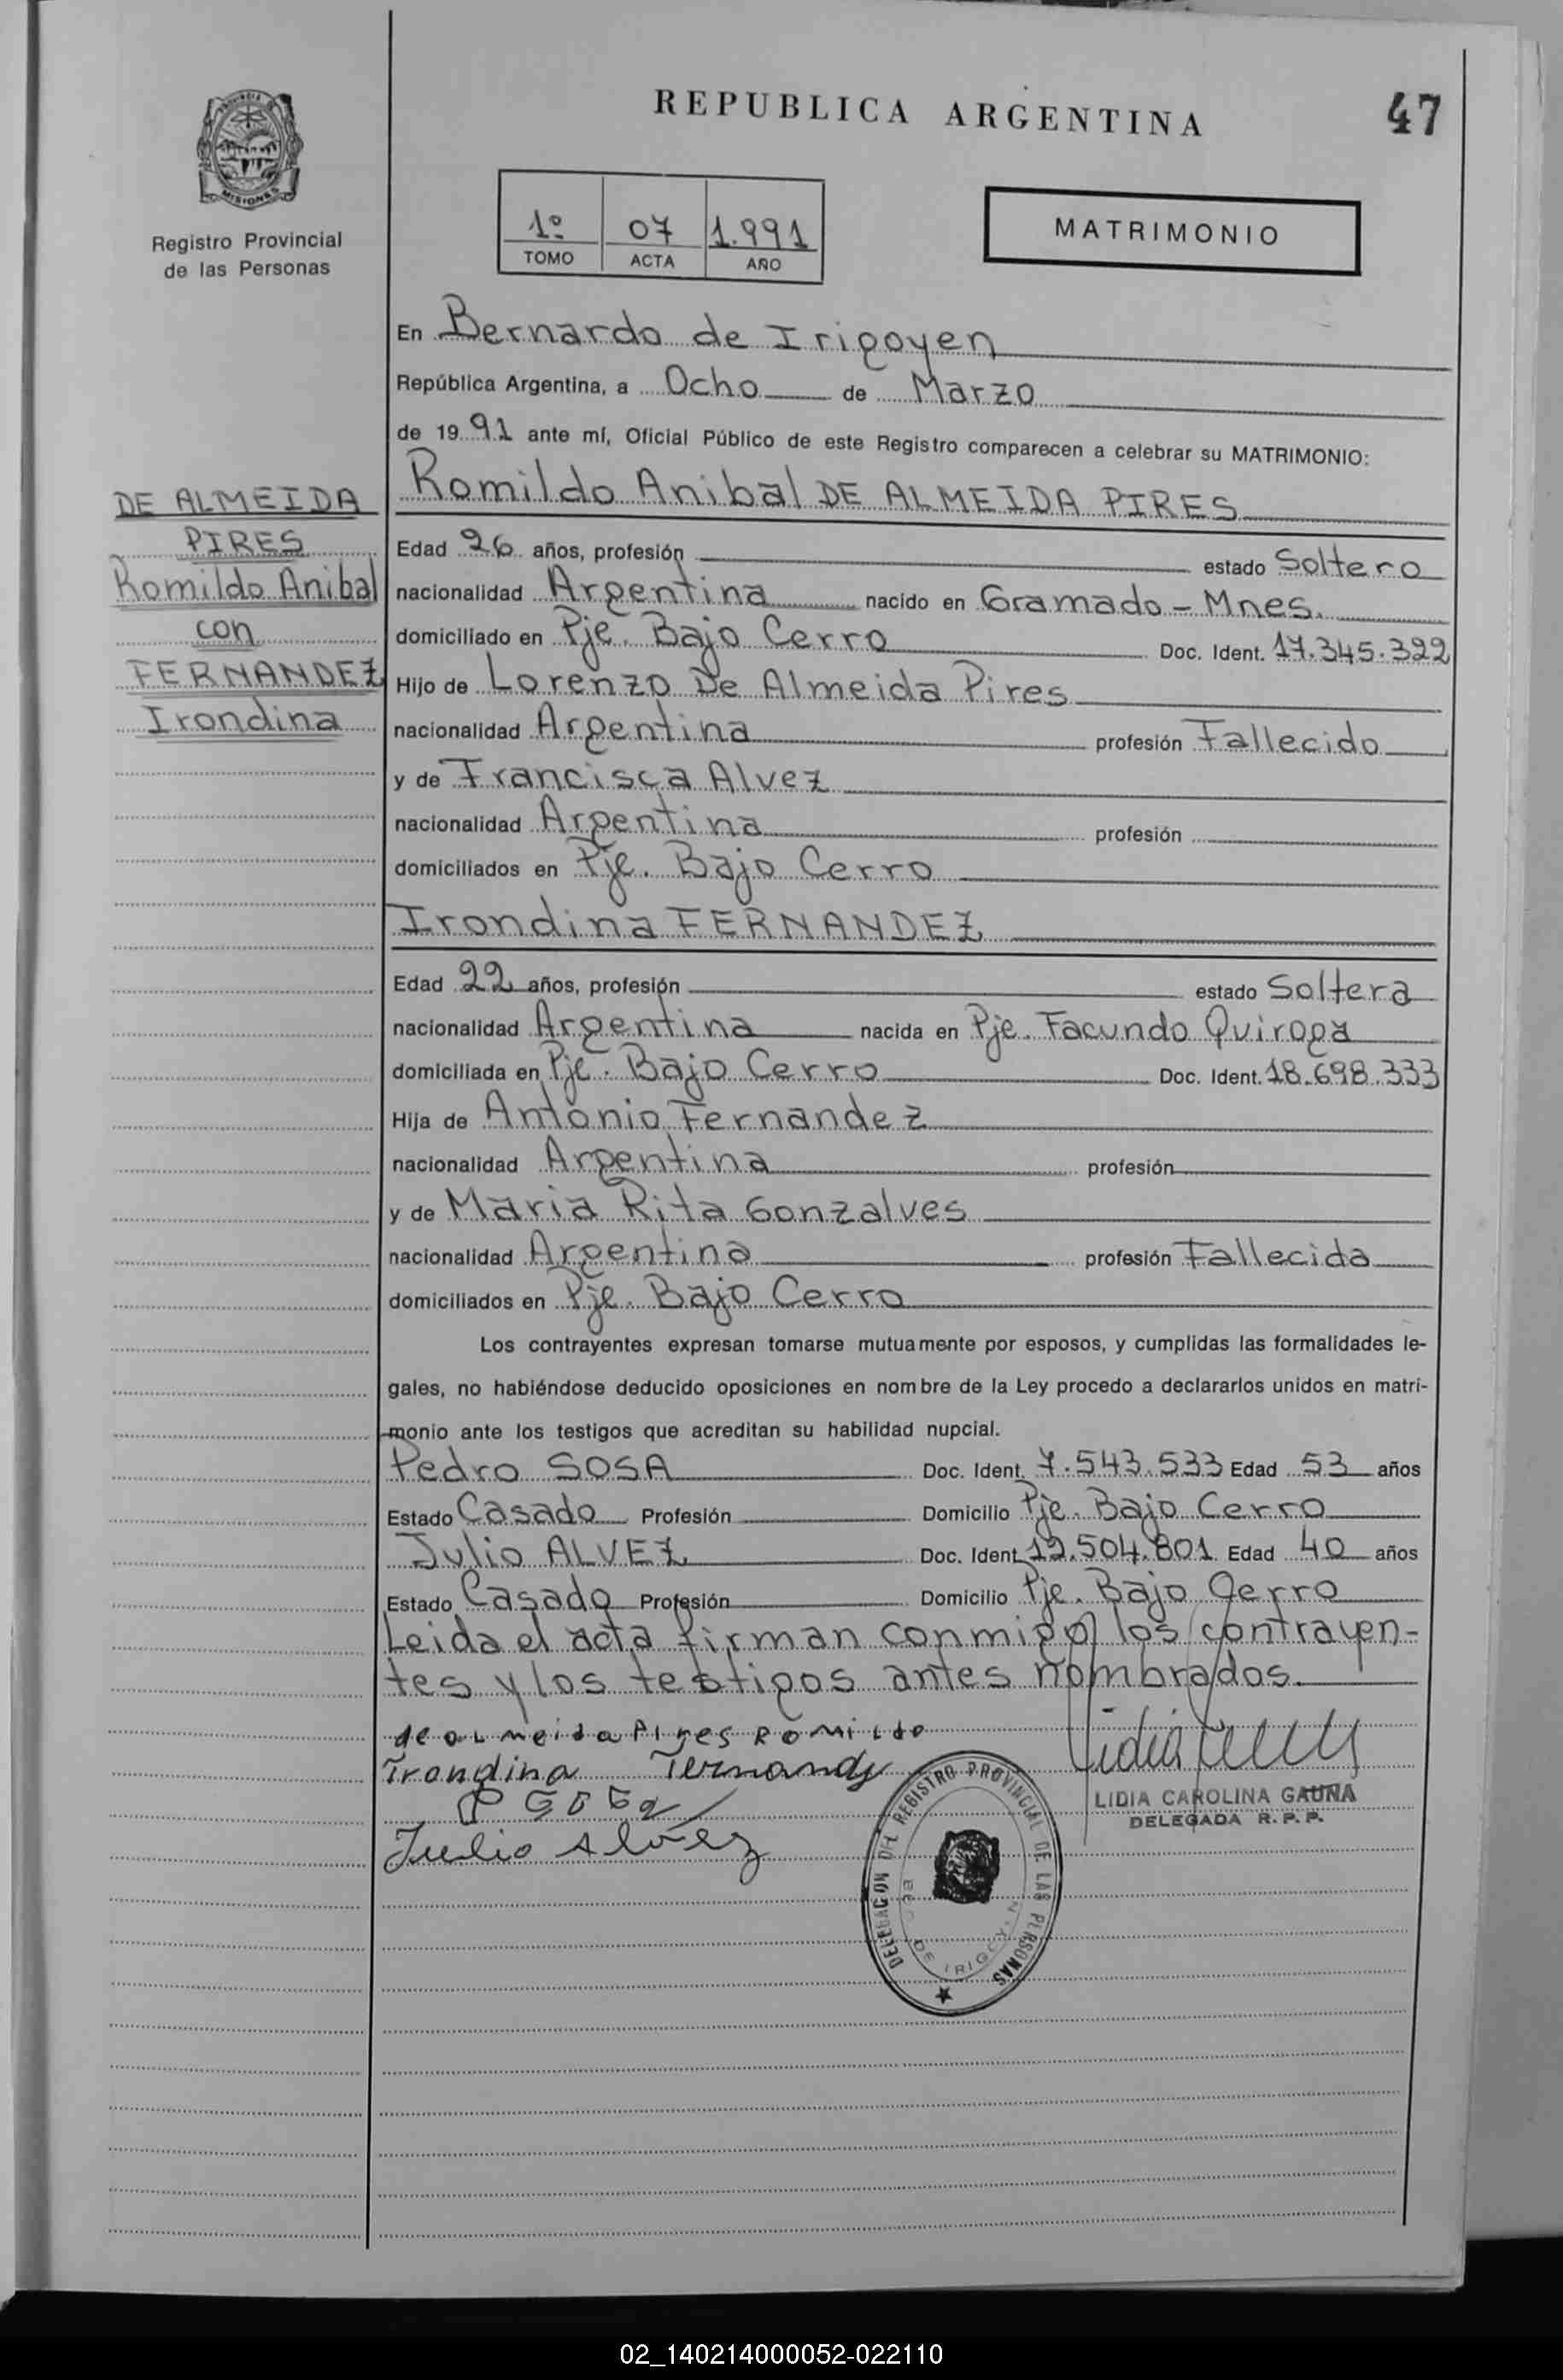 REPUBLICA ARGENTINA
47
PROVINCIA
MISIONES
Registro Provincial
de las Personas
1º 07 1.991
TOMO ACTA AÑO
MATRIMONIO
En Bernardo de Irigoyen
República Argentina, a Ocho de Marzo
de 1991 ante mí, Oficial Público de este Registro comparecen a celebrar su MATRIMONIO:
DE ALMEIDA
PIRES
Romildo Anibal
con
FERNANDEZ
Irondina
Romildo Anibal DE ALMEIDA PIRES
Edad 26 años, profesión estado Soltero
nacionalidad Argentina nacido en Gramado - Mnes.
domiciliado en Pje. Bajo Cerro Doc. Ident. 17.345.322
Hijo de Lorenzo De Almeida Pires
nacionalidad Argentina profesión Fallecido
y de Francisca Alvez
nacionalidad Argentina profesión
domiciliados en Pje. Bajo Cerro
Irondina FERNANDEZ
Edad 22 años, profesión estado Soltera
nacionalidad Argentina nacida en Pje. Facundo Quiroga
domiciliada en Pje. Bajo Cerro Doc. Ident. 18.698.333
Hija de Antonio Fernandez
nacionalidad Argentina profesión
y de Maria Rita Gonzalves
nacionalidad Argentina profesión Fallecida
domiciliados en Pje. Bajo Cerro
Los contrayentes expresan tomarse mutuamente por esposos, y cumplidas las formalidades le-
gales, no habiéndose deducido oposiciones en nombre de la Ley procedo a declararlos unidos en matri-
monio ante los testigos que acreditan su habilidad nupcial.
Pedro SOSA Doc. Ident. 7.543.533 Edad 53 años
Estado Casado Profesión Domicilio Pje. Bajo Cerro
Julio ALVEZ Doc. Ident. 12.504.801 Edad 40 años
Estado Casado Profesión Domicilio Pje. Bajo Cerro
Leida el acta firman conmigo los contrayen-
tes y los testigos antes nombrados.
de almeida Pires Romildo
Irondina Fernandz
Julio Alvez
LIDIA CAROLINA GAUNA
DELEGADA R.P.P.
DELEGACION DEL REGISTRO PROVINCIAL DE LAS PERSONAS
BDO. DE IRIGOYEN
02_140214000052-022110